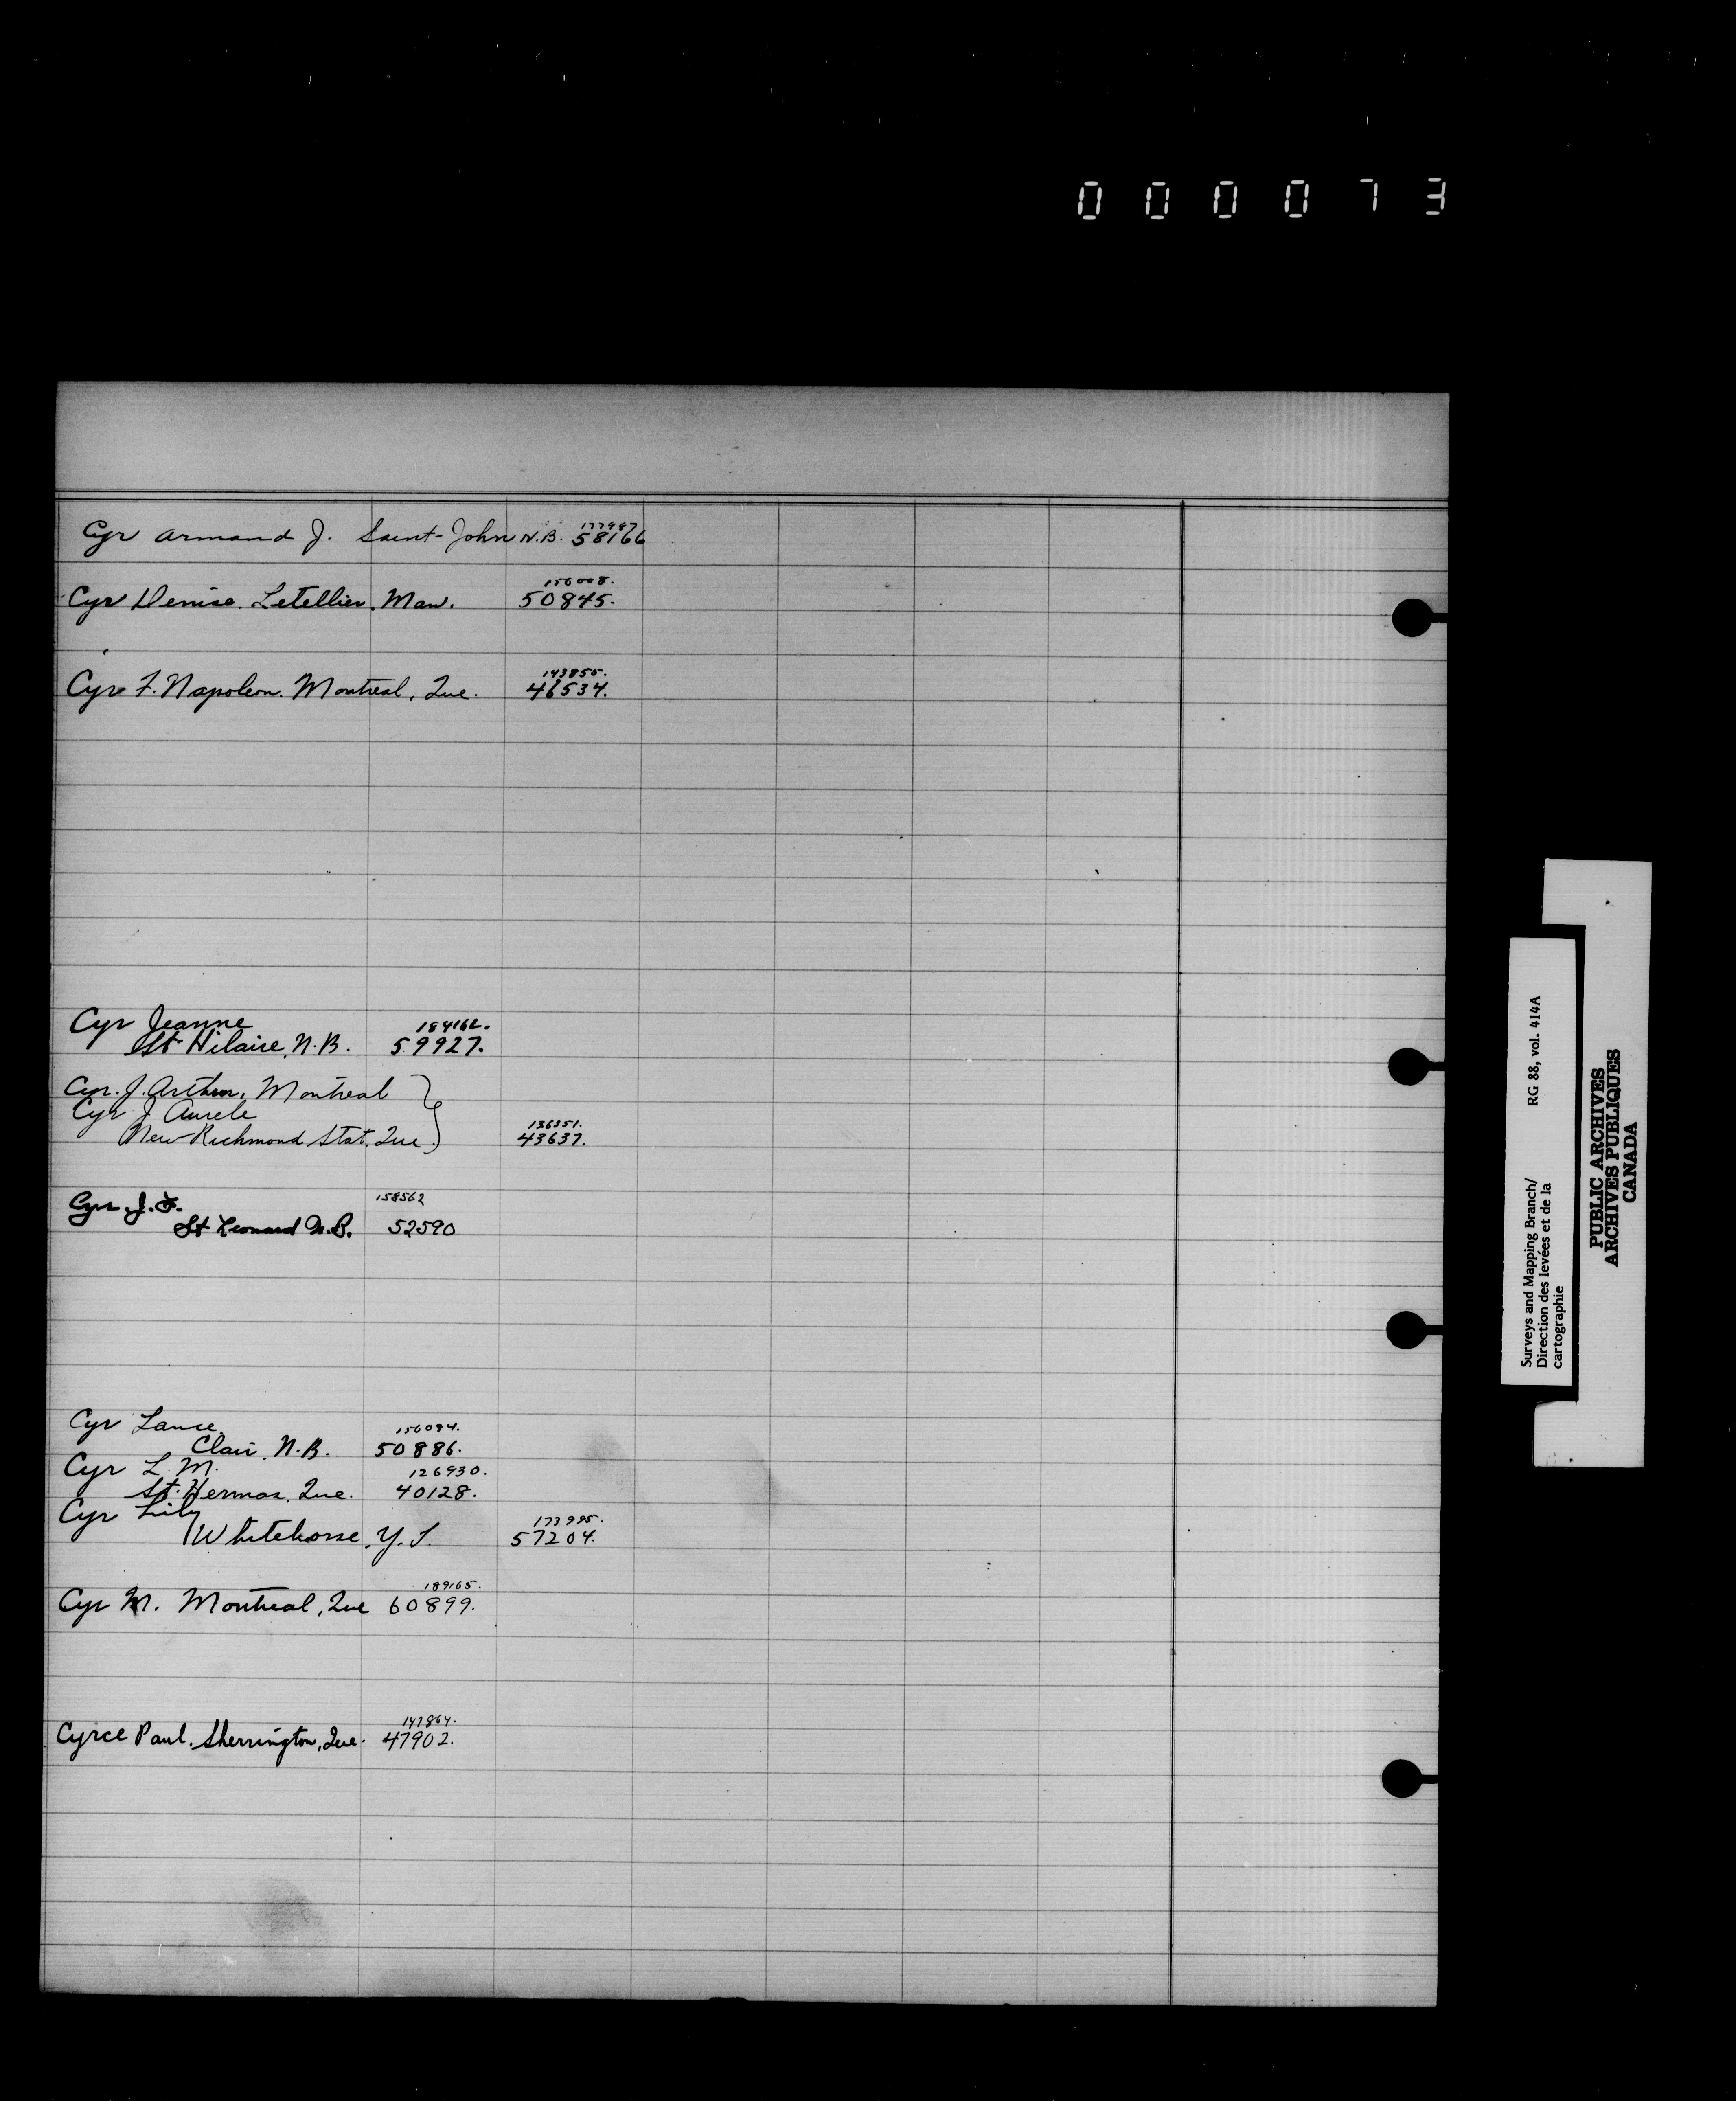 000073
177987
Cyr Armand J. Saint-John N.B. 58166
156008.
Cyr Denise. Letellier, Man. 50845.
143855.
Cyr F. Napoleon. Montreal, Que. 46534.
Cyr Jeanne 184162.
St. Hilaire, N.B. 59927.
Cyr. J. Arthur, Montreal
Cyr J Aurele
136351.
New-Richmond Stat. Que. 43637.
Cyr. J. F. 158562
St Leonard N.B. 52590
Cyr 156094.
Clair, N.B. 50886.
Cyr L. M. 126930.
St. Hermas, Que. 40128.
Cyr Lily 173995.
Whitehorse, Y.T. 57204.
189165.
Cyr M. Montreal, Que 60899.
147864.
Cyrce Paul. Sherrington, Que. 47902.
Surveys and Mapping Branch/ RG 88, vol. 414A
Direction des levées et de la
cartographie
PUBLIC ARCHIVES
ARCHIVES PUBLIQUES
CANADA